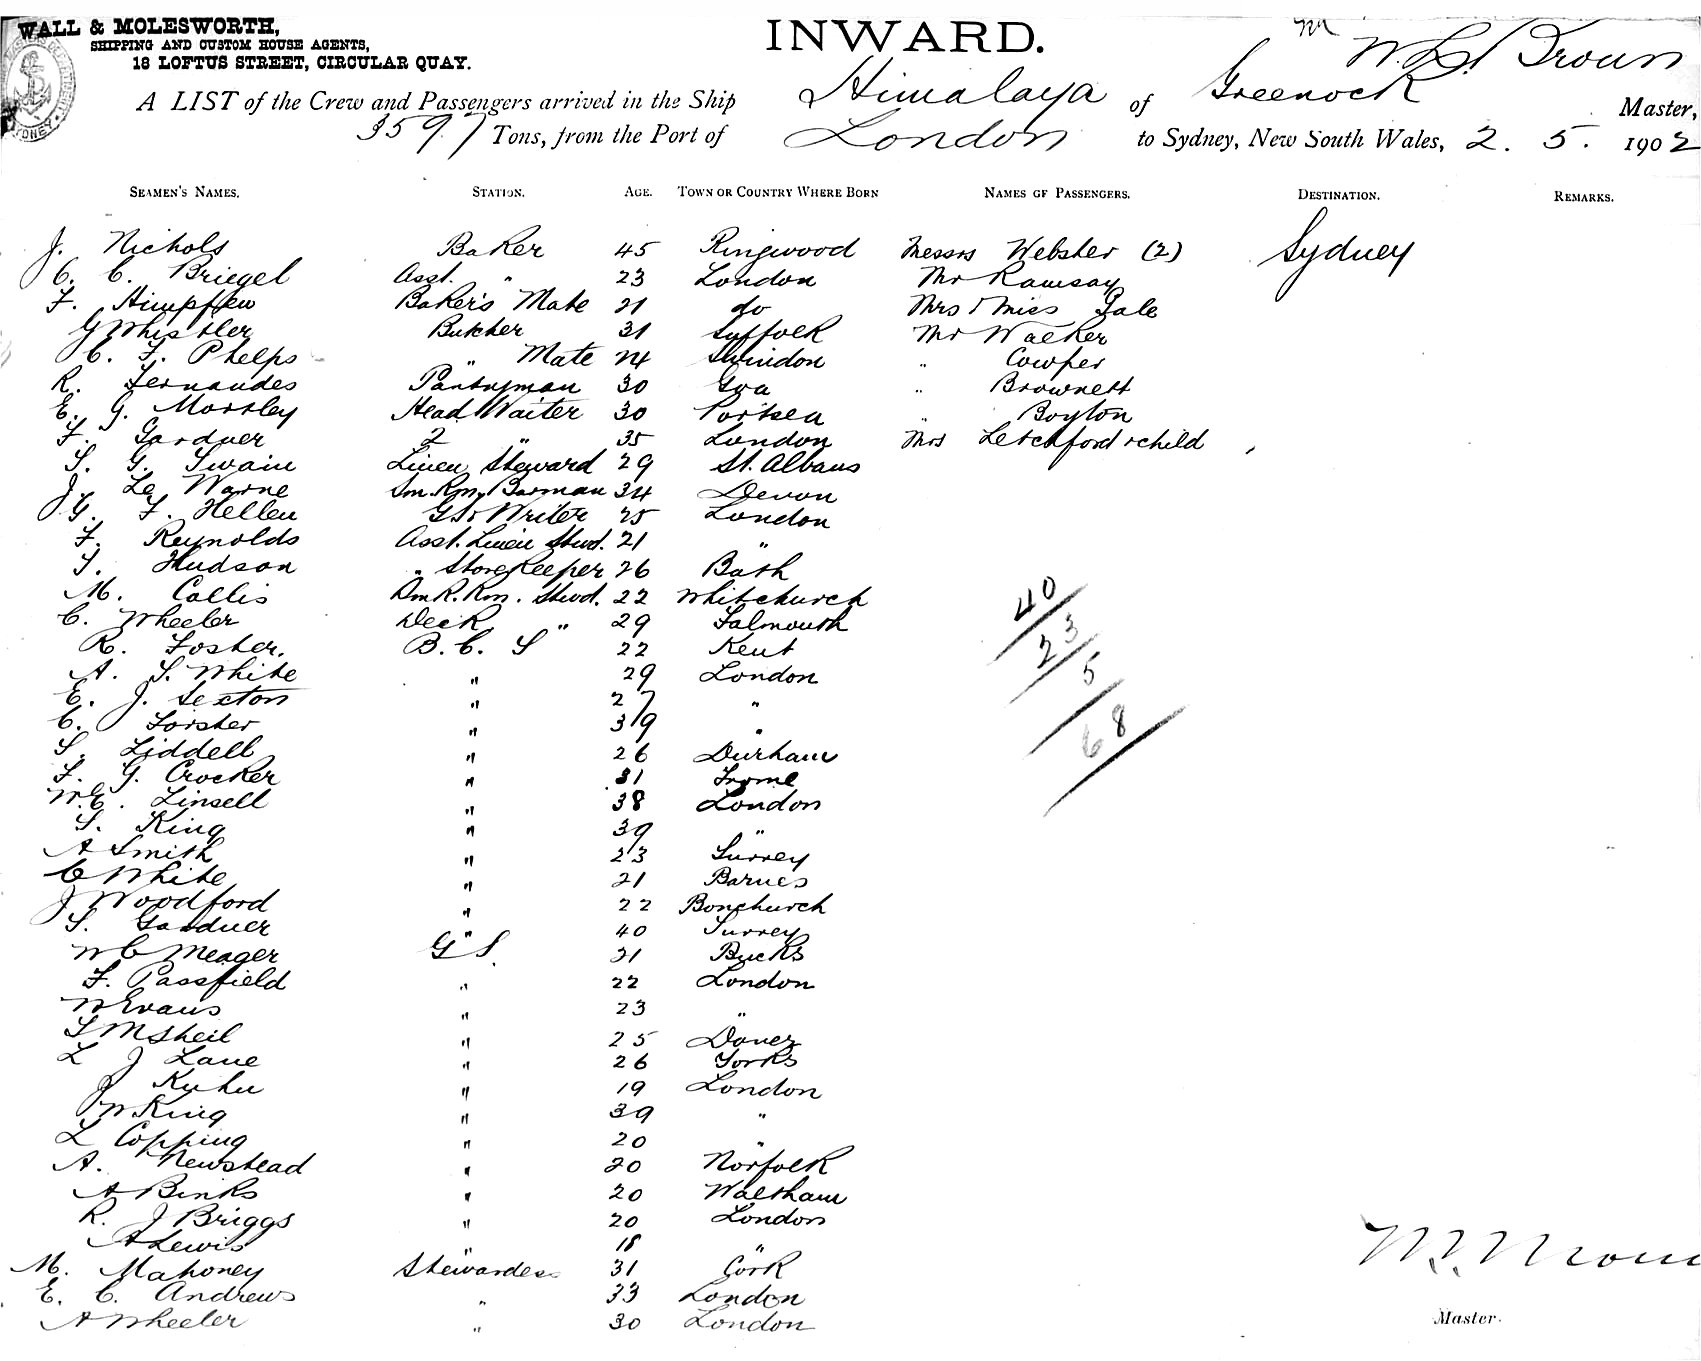 WALL & MOLESWORTH,
SHIPPING AND CUSTOM HOUSE AGENTS,
18 LOFTUS STREET, CIRCULAR QUAY.
INWARD.
W. L. Broun
A LIST of the Crew and Passengers arrived in the Ship Himalaya of Greenock Master,
3597 Tons, from the Port of London to Sydney, New South Wales, 2. 5. 1902
SEAMEN'S NAMES. STATION. AGE. TOWN OR COUNTRY WHERE BORN NAMES OF PASSENGERS. DESTINATION. REMARKS.
J. Nichols Baker 45 Ringwood Messrs Webster (2) Sydney
C. C. Briegel Asst. " 23 London Mr Ramsay
F. Himpffen Baker's Mate 21 do Mrs & Miss Gale
G Whistler Butcher 31 Suffolk Mr Walker
C. F. Phelps " Mate 24 Swindon " Cowper
R. Fernandes Pantryman 30 Goa " Brownett
E. G. Morsley Head Waiter 30 Portsea " Boylon
F. Gardner 2 " 35 London Mrs Letchford & child
S. G. Swain Linen Steward 29 St. Albans
J. Le Warne Sm. Rm. Barman 34 Devon
J. G. F. Hellen Writer 25 London
F. Reynolds Asst. Linen Stwd. 21 "
S. Hudson " Storekeeper 26 Bath
M. Collis Sm R. Rm. Stwd. 22 Whitchurch
C. Wheeler Deck " 29 Falmouth
R. Foster. B. C. S 22 Kent
A. S. White " 29 London
E. J. Sexton " 27 "
C. Forster " 39 "
S. Liddell " 26 Durham
F. G. Crocker " 31 Frome
W. E. Linsell " 38 London
S. King " 39 "
A Smith " 23 Surrey
C White " 21 Barnes
J Woodford " 22 Bonchurch
S. Gardner " 40 Surrey
W C Meager G S. 21 Bucks
F. Passfield " 22 London
W Evans " 23 "
S M Sheil " 25 Dover
L J Lane " 26 Yorks
J Kuhn " 19 London
W King " 39 "
L Copping " 20 "
A. Newstead " 20 Norfolk
A Binks " 20 Waltham
R. J Briggs " 20 London
A Lewis " 18 "
M. Mahoney Stewardess 31 Cork
E. C. Andrews " 33 London
A Wheeler " 30 London
40
23
5
68
Master.